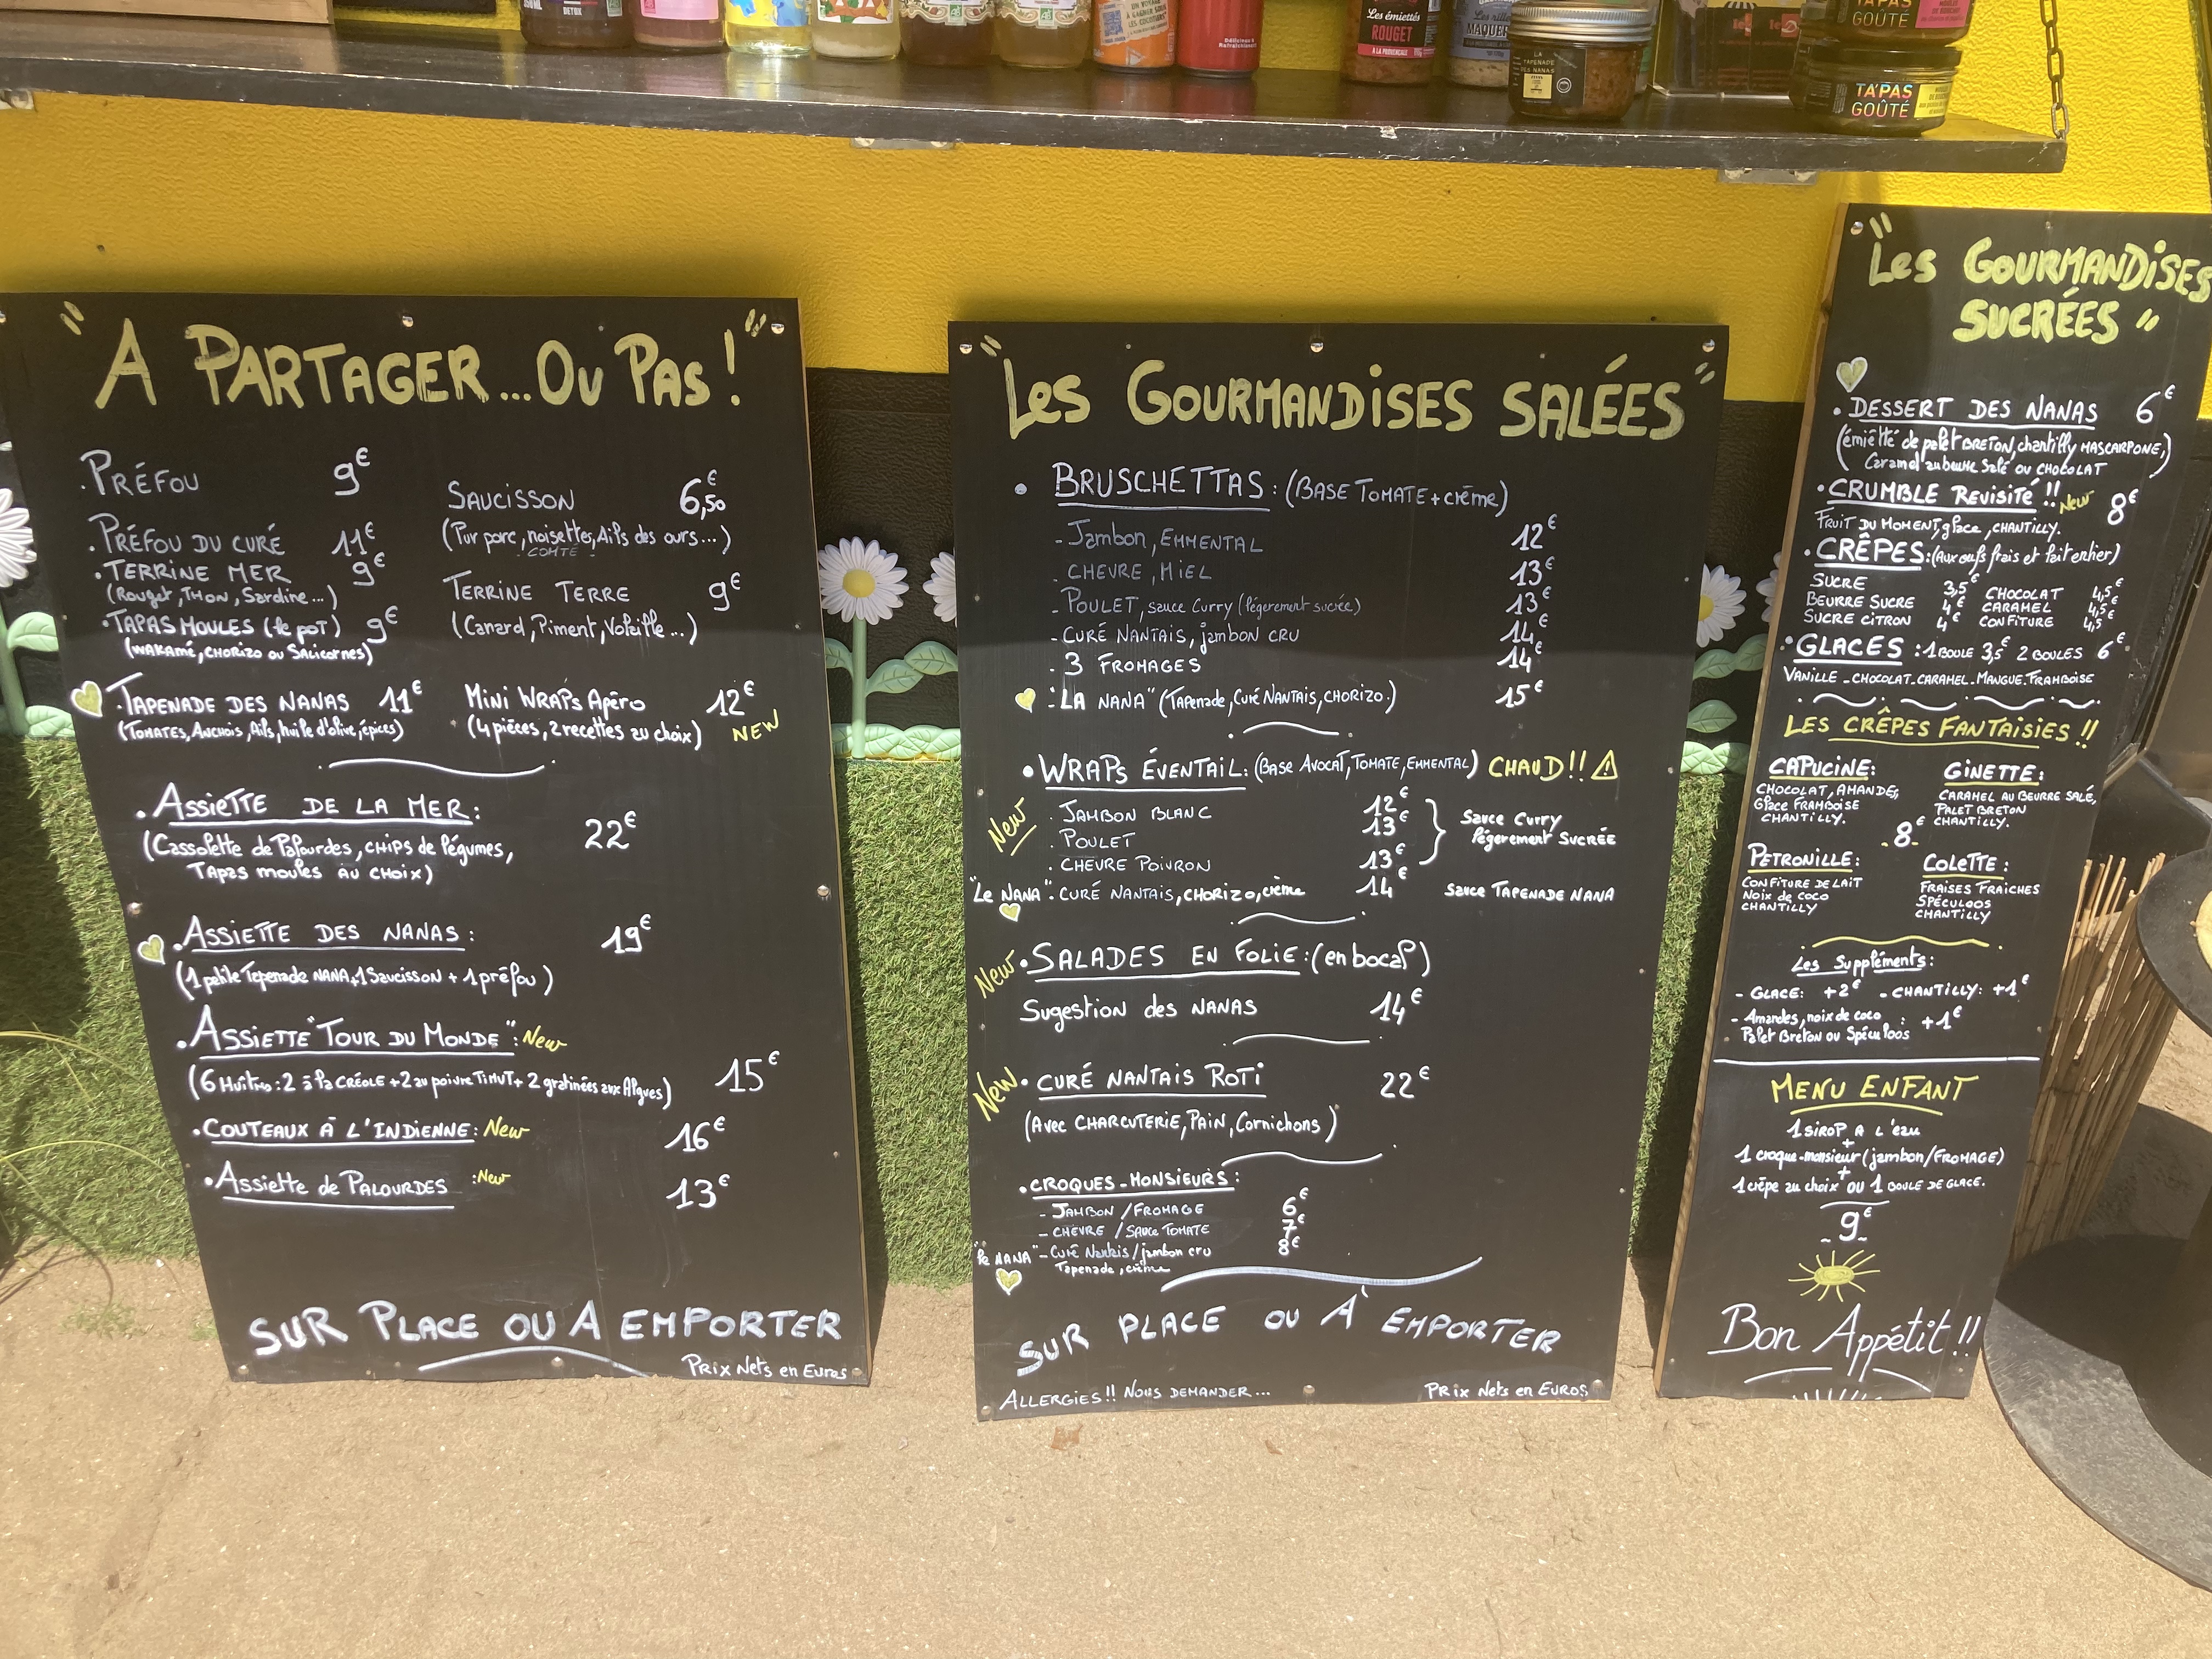 DETOX
Les émiettés
ROUGET
À LA PROVENÇALE
MAQUER
LA
TAPENADE
DES NANAS
TA'PAS
GOÛTÉ
TA'PAS
GOÛTÉ
"A PARTAGER...OU PAS!"
.PRÉFOU 9€
.PRÉFOU DU CURÉ 11€
.TERRINE MER 9€
(Rouget, THON, Sardine...)
.TAPAS MOULES (le poT) 9€
(WAKAMÉ, CHORIZO OU SALICORNES)
SAUCISSON 6,50€
(Pur porc, noisettes, Ails des ours...)
COMTÉ
TERRINE TERRE 9€
(Canard, Piment, Volaille...)
.TAPENADE DES NANAS 11€
(TOMATES, ANCHOIS, Ails, huile d'olive, épices)
MiNi WRAPs Apéro 12€
(4 pièces, 2 recettes au choix) NEW
.ASSIETTE DE LA MER: 22€
(Cassolette de Palourdes, CHIPS de légumes,
TApas moules AU CHOIX)
.ASSIETTE DES NANAS: 19€
(1 petite Tapenade NANA+1 Saucisson + 1 préfou)
.ASSIETTE "TOUR DU MONDE": New
(6 Huîtres: 2 à la CRÉOLE + 2 au poivre TIMUT + 2 gratinées aux Algues) 15€
.COUTEAUX À L'INDIENNE: New 16€
.Assiette de PALOURDES :New 13€
SUR PLACE OU A EMPORTER
PRIX Nets en Euros
"Les GOURMANDISES SALÉES"
. BRUSCHETTAS: (BASE TOMATE + crème)
- Jambon, EMMENTAL 12€
- CHEVRE, MIEL 13€
- POULET, sauce Curry (légerement sucrée) 13€
- CURÉ NANTAIS, jambon CRU 14€
- 3 FROMAGES 14€
- "LA NANA" (Tapenade, Curé NANTAIS, CHORIZO.) 15€
.WRAPs ÉVENTAIL: (Base AVOCAT, TOMATE, EMMENTAL) CHAUD!! ⚠
New
. JAMBON BLANC 12€
. POULET 13€
. CHEVRE POIVRON 13€
Sauce Curry
légerement SUCRÉE
"Le NANA". CURÉ NANTAIS, CHORIZO, crème 14€ Sauce TAPENADE NANA
New .SALADES EN FOLIE: (en bocal)
Sugestion des NANAS 14€
New . CURÉ NANTAIS ROTI 22€
(Avec CHARCUTERIE, PAIN, Cornichons)
.CROQUES-MONSIEURS:
- JAMBON / FROMAGE 6€
- CHEVRE / SAUCE TOMATE 7€
"le NANA" - Curé Nantais / jambon cru 8€
Tapenade, crème
SUR PLACE OU À EMPORTER
ALLERGIES!! NOUS DEMANDER...
PRIX Nets en EUROS
"Les GOURMANDISES
SUCRÉES"
. DESSERT DES NANAS 6€
(émietté de palet BRETON, chantilly MASCARPONE,
Caramel au beurre Salé ou CHOCOLAT)
.CRUMBLE REVISITÉ !! New 8€
FRUIT DU MOMENT, glace, CHANTILLY.
.CRÊPES: (Aux oeufs frais et lait entier)
SUCRE 3,5€ CHOCOLAT 4,5€
BEURRE SUCRE 4€ CARAMEL 4,5€
SUCRE CITRON 4€ CONFITURE 4,5€
.GLACES: 1 BOULE 3,5€ 2 BOULES 6€
VANILLE - CHOCOLAT - CARAMEL - MANGUE - FRAMBOISE
LES CRÊPES FANTAISIES!!
CAPUCINE:
CHOCOLAT, AMANDES,
Glace FRAMBOISE
CHANTILLY.
GINETTE:
CARAMEL AU BEURRE SALÉ,
PALET BRETON
CHANTILLY.
- 8€ -
PETRONILLE:
CONFITURE DE LAIT
Noix de COCO
CHANTILLY
COLETTE:
FRAISES FRAICHES
SPÉCULOOS
CHANTILLY
Les Suppléments:
- GLACE: +2€ - CHANTILLY: +1€
- Amandes, noix de coco
Palet Breton ou Spéculoos : +1€
MENU ENFANT
1 SIROP A L'EAU
+
1 croque-monsieur (jambon/FROMAGE)
+
1 crêpe au choix OU 1 BOULE DE GLACE.
- 9€ -
Bon Appétit!!